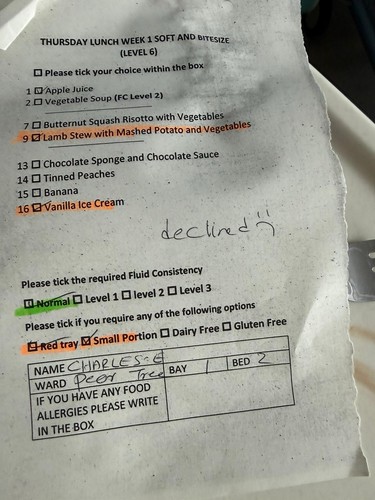 THURSDAY LUNCH WEEK 1 SOFT AND BITESIZE
(LEVEL 6)
☐ Please tick your choice within the box
1 ☑ Apple Juice
2 ☐ Vegetable Soup (FC Level 2)
7 ☐ Butternut Squash Risotto with Vegetables
9 ☑ Lamb Stew with Mashed Potato and Vegetables
13 ☐ Chocolate Sponge and Chocolate Sauce
14 ☐ Tinned Peaches
15 ☐ Banana
16 ☑ Vanilla Ice Cream
declined
Please tick the required Fluid Consistency
☑ Normal ☐ Level 1 ☐ level 2 ☐ Level 3
Please tick if you require any of the following options
☑ Red tray ☑ Small Portion ☐ Dairy Free ☐ Gluten Free
NAME CHARLES-E
WARD Pear Tree BAY 1 BED 2
IF YOU HAVE ANY FOOD
ALLERGIES PLEASE WRITE
IN THE BOX